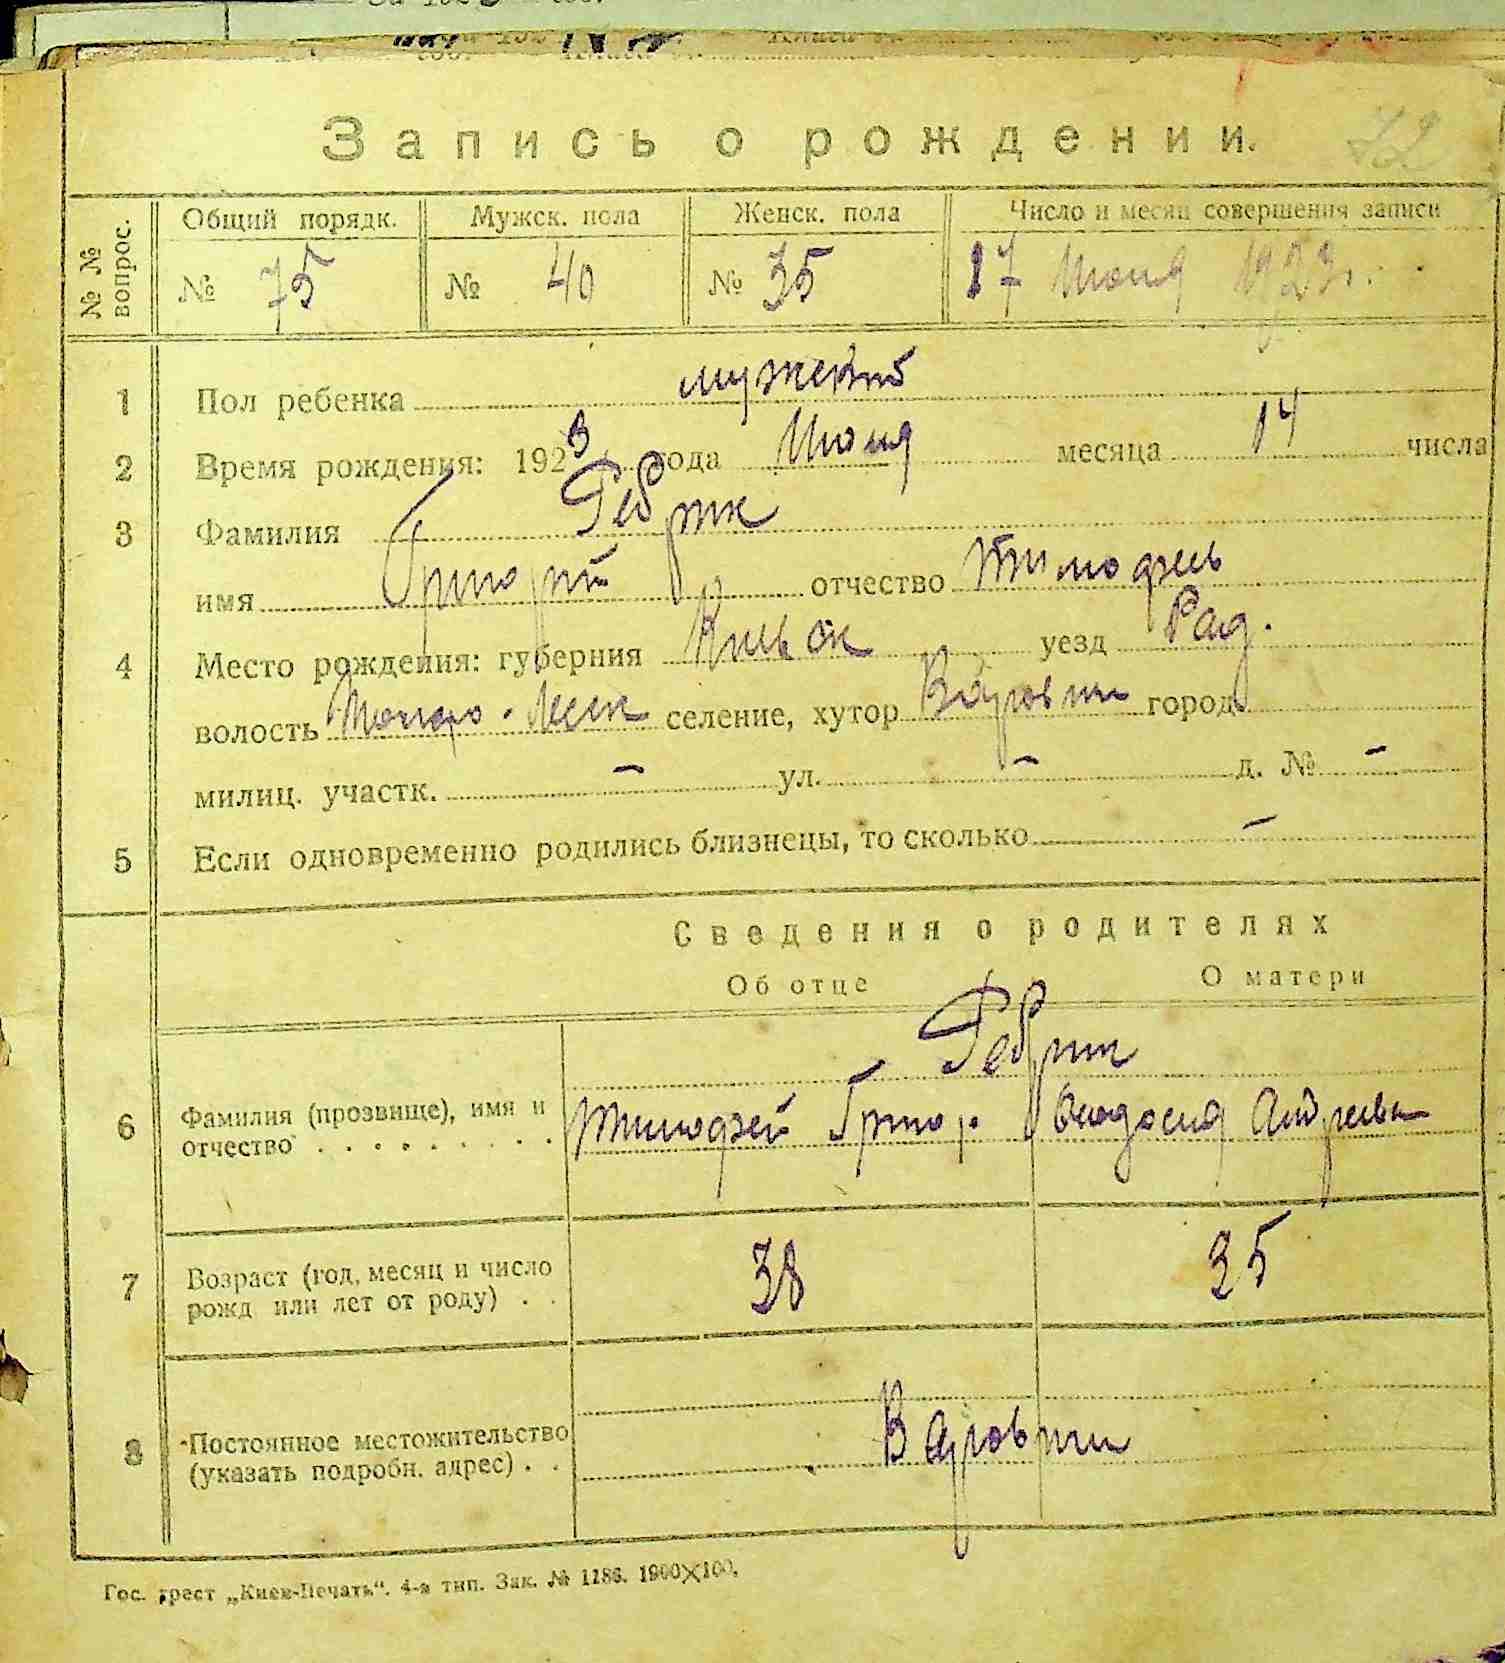 Запись о рождении.
№ № вопрос.
Общий порядк. Мужск. пола Женск. пола Число и месяц совершения записи
№ 75 № 40 № 35 17 Июня 1923г.
1 Пол ребенка мужской
2 Время рождения: 1923 года Июня месяца 14 числа
3 Фамилия Ребрик
имя Григорий отчество Тимофеев
4 Место рождения: губерния Киевск уезд Рад.
волость селение, хутор город
милиц. участк. – ул. – д. № –
5 Если одновременно родились близнецы, то сколько –
Сведения о родителях
Об отце О матери
Ребрик
6 Фамилия (прозвище), имя и
отчество
Тимофей Григор. Феодосия Андреевн
7 Возраст (год, месяц и число
рожд или лет от роду) . .
38 35
8 Постоянное местожительство
(указать подробн. адрес) . .
Гос. трест „Киев-Печать“. 4-я тип. Зак. № 1186. 1900×100.